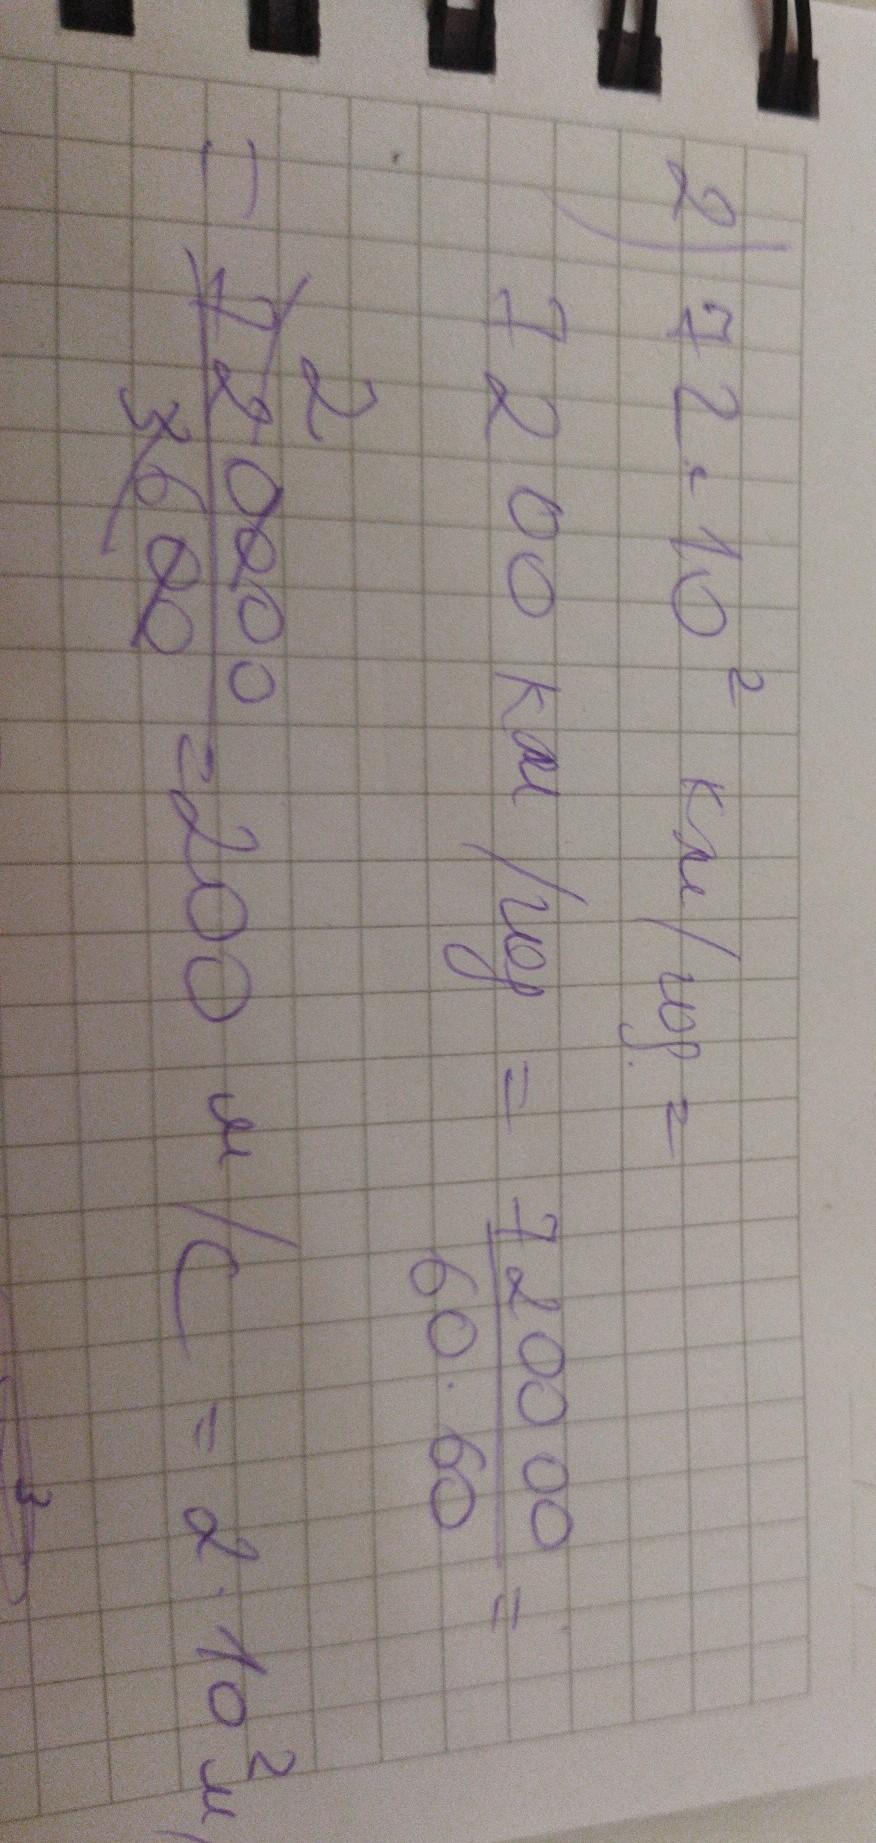 2) 72·10² км/год =
7200 км/год = 720000 / 60·60 =
= 2 720000 / 3600 = 200 м/с = 2·10² м/
3